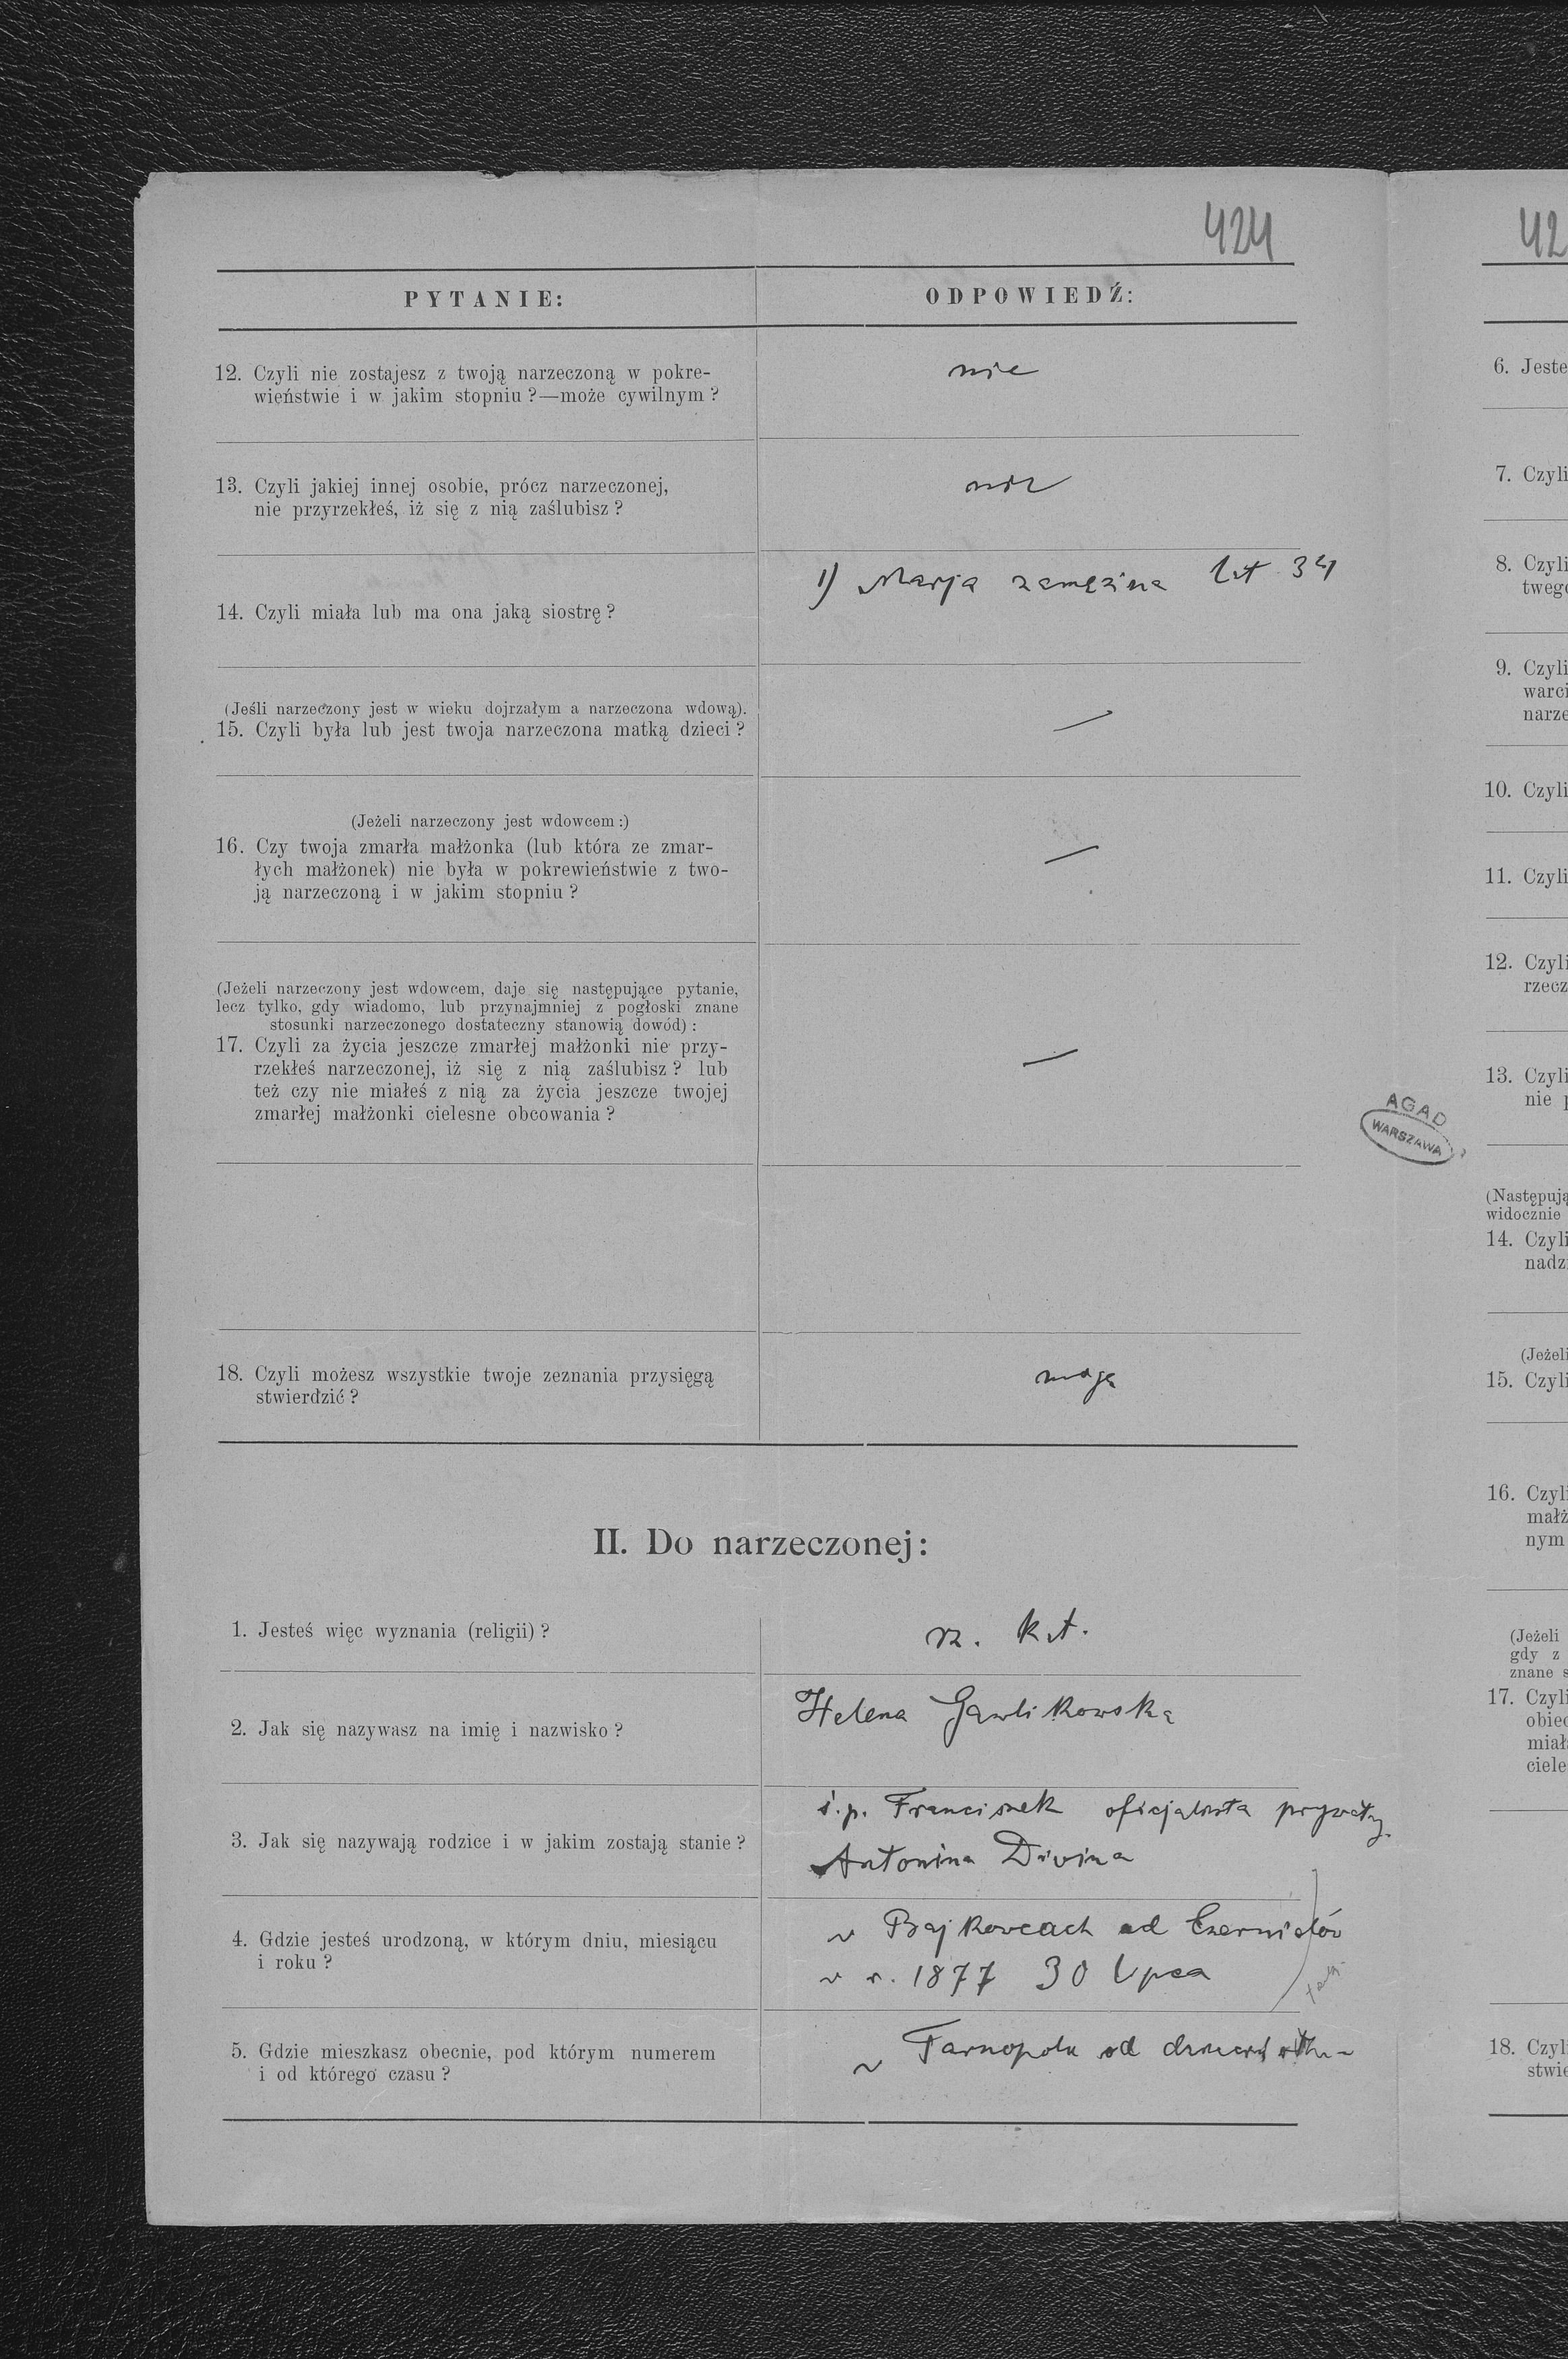 424
PYTANIE:
ODPOWIEDŹ:
12. Czyli nie zostajesz z twoją narzeczoną w pokre-
wieństwie i w jakim stopniu?—może cywilnym?
nie
13. Czyli jakiej innej osobie, prócz narzeczonej,
nie przyrzekłeś, iż się z nią zaślubisz?
nie
14. Czyli miała lub ma ona jaką siostrę?
1) Marja zamężna lat 34
(Jeśli narzeczony jest w wieku dojrzałym a narzeczona wdową).
15. Czyli była lub jest twoja narzeczona matką dzieci?
—
(Jeżeli narzeczony jest wdowcem:)
16. Czy twoja zmarła małżonka (lub która ze zmar-
łych małżonek) nie była w pokrewieństwie z two-
ją narzeczoną i w jakim stopniu?
—
(Jeżeli narzeczony jest wdowcem, daje się następujące pytanie,
lecz tylko, gdy wiadomo, lub przynajmniej z pogłoski znane
stosunki narzeczonego dostateczny stanowią dowód):
17. Czyli za życia jeszcze zmarłej małżonki nie przy-
rzekłeś narzeczonej, iż się z nią zaślubisz? lub
też czy nie miałeś z nią za życia jeszcze twojej
zmarłej małżonki cielesne obcowania?
—
18. Czyli możesz wszystkie twoje zeznania przysięgą
stwierdzić?
mogę
II. Do narzeczonej:
1. Jesteś więc wyznania (religii)?
rz. kat.
2. Jak się nazywasz na imię i nazwisko?
Helena Gawlikowska
3. Jak się nazywają rodzice i w jakim zostają stanie?
ś.p. Franciszek oficjalista prywatny
Antonina Divina
4. Gdzie jesteś urodzoną, w którym dniu, miesiącu
i roku?
w Bajkowcach ad Czernielów
w r. 1877 30 lipca
5. Gdzie mieszkasz obecnie, pod którym numerem
i od którego czasu?
w Tarnopolu od
AGAD
WARSZAWA
42
6. Jeste
7. Czyli
8. Czyli
twego
9. Czyli
warci
narze
10. Czyli
11. Czyli
12. Czyli
rzecz
13. Czyli
nie p
(Następują
widocznie
14. Czyli
nadz
(Jeżeli
15. Czyli
16. Czyli
małż
nym
(Jeżeli
gdy z
znane s
17. Czyli
obiec
miał
ciele
18. Czyli
stwie